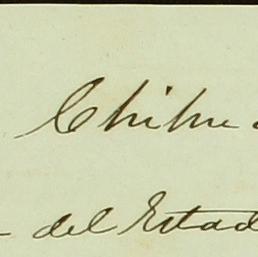 Chihu
del Estad